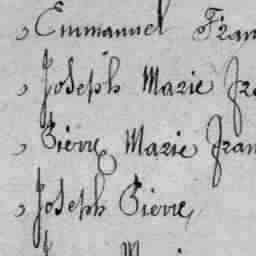 , Emmanuel Fran
, Joseph Marie Fra
, Pierre Marie Fran
, Joseph Pierre,